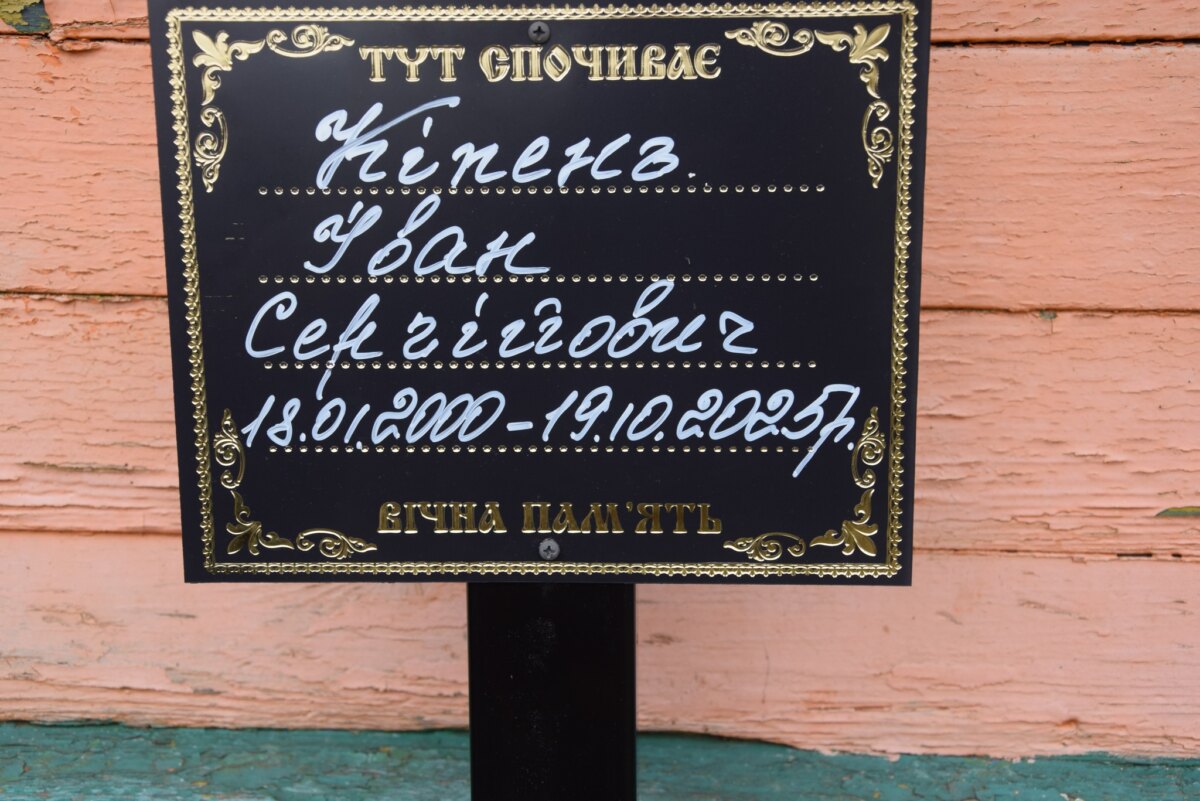 ТУТ СПОЧИВАЄ
Кіпень
Іван
Сергійович
18.01.2000-19.10.2025р.
ВІЧНА ПАМ'ЯТЬ